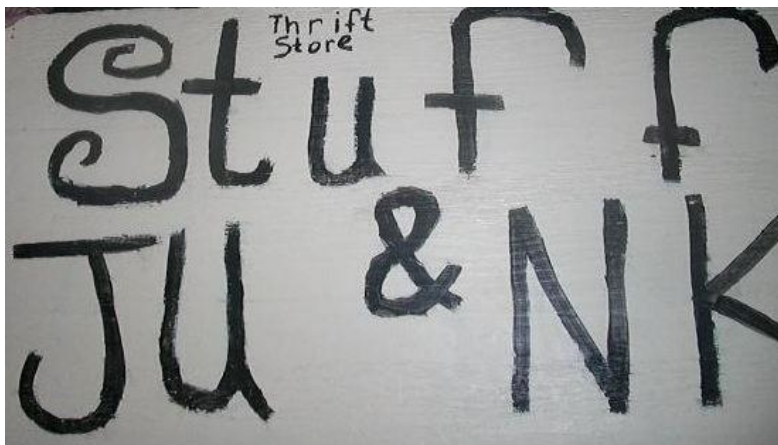 Thrift
Store
Stuff
&
JUNK